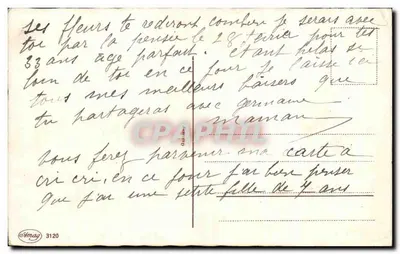 ses fleurs te rediront combien je serais avec
toi par la pensée le 28 fevrier pour tes
33 ans age parfait. Etant helas si
loin de toi en ce jour je laisse ici
tous mes meilleurs baisers que
tu partageras avec germaine
maman
CPAPHIL
vous ferez parvenir ma carte à
cri cri, en ce jour j'ai bon penser
que j'ai une petite fille de 4 ans
3120